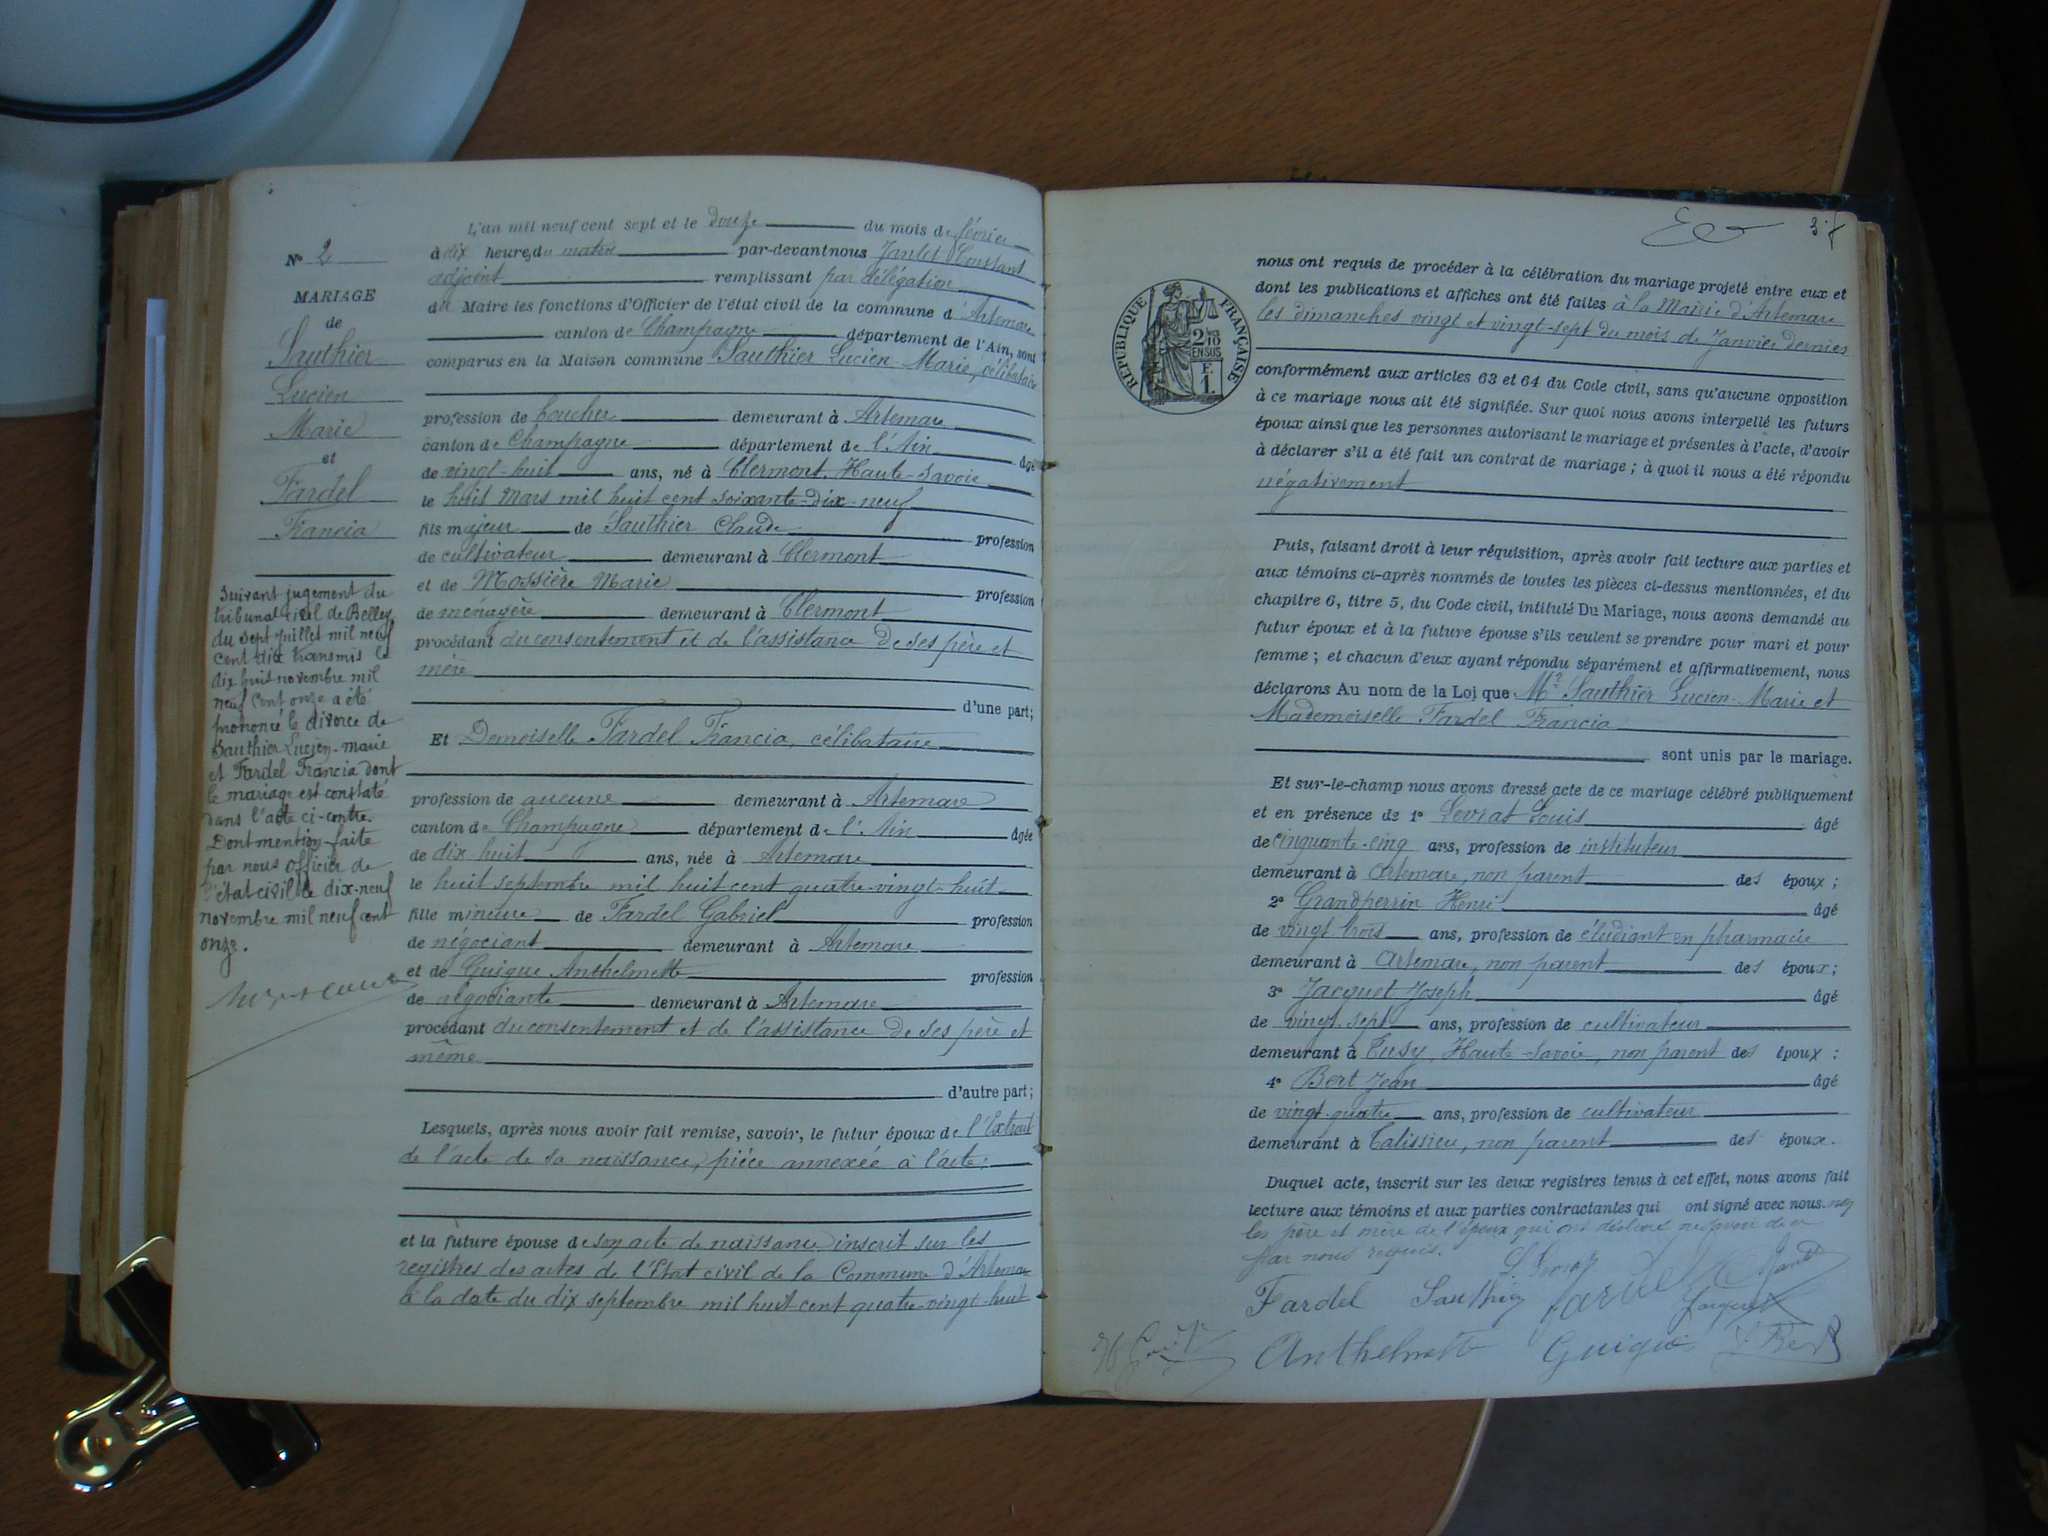 N° 2
MARIAGE
de
Sauthier
Lucien
Marie
et
Fardel
Francia
Suivant jugement du
tribunal civil de Belley
du sept juillet mil neuf
cent dix transmis le
dix huit novembre mil
neuf cent onze a été
prononcé le divorce de
Sauthier Lucien-Marie
et Fardel Francia dont
le mariage est constaté
dans l'acte ci-contre.
Dont mention faite
par nous officier de
l'état civil le dix-neuf
novembre mil neuf cent
onze.
L'an mil neuf cent sept et le douze du mois de février
à dix heures du matin par-devant nous Constant
adjoint remplissant par délégation
du Maire les fonctions d'Officier de l'état civil de la commune d'Artemare
canton de Champagne département de l'Ain, sont
comparus en la Maison commune Sauthier Lucien-Marie, célibataire
profession de boucher demeurant à Artemare
canton de Champagne département de l'Ain âgé
de vingt-huit ans, né à Clermont, Haute-Savoie
le huit Mars mil huit cent soixante-dix-neuf
fils majeur de Sauthier Claude profession
de cultivateur demeurant à Clermont
et de Mossière Marie profession
de ménagère demeurant à Clermont
procédant du consentement et de l'assistance de ses père et
mère
d'une part;
Et Demoiselle Fardel Francia, célibataire
profession de aucune demeurant à Artemare
canton de Champagne département de l'Ain âgée
de dix huit ans, née à Artemare
le huit septembre mil huit cent quatre-vingt-huit
fille mineure de Fardel Gabriel profession
de négociant demeurant à Artemare
et de Guigue Anthelmette profession
de négociante demeurant à Artemare
procédant du consentement et de l'assistance de ses père et
même
d'autre part;
Lesquels, après nous avoir fait remise, savoir, le futur époux de l'Extrait
de l'acte de sa naissance, pièce annexée à l'acte;
et la future épouse de son acte de naissance inscrit sur les
registres des actes de l'Etat civil de la Commune d'Artemare
à la date du dix septembre mil huit cent quatre-vingt-huit
37
RÉPUBLIQUE FRANÇAISE
2/10
EN SUS
F.
1.
nous ont requis de procéder à la célébration du mariage projeté entre eux et
dont les publications et affiches ont été faites à la Mairie d'Artemare
les dimanches vingt et vingt-sept du mois de Janvier dernier
conformément aux articles 63 et 64 du Code civil, sans qu'aucune opposition
à ce mariage nous ait été signifiée. Sur quoi nous avons interpellé les futurs
époux ainsi que les personnes autorisant le mariage et présentes à l'acte, d'avoir
à déclarer s'il a été fait un contrat de mariage ; à quoi il nous a été répondu
négativement
Puis, faisant droit à leur réquisition, après avoir fait lecture aux parties et
aux témoins ci-après nommés de toutes les pièces ci-dessus mentionnées, et du
chapitre 6, titre 5, du Code civil, intitulé Du Mariage, nous avons demandé au
futur époux et à la future épouse s'ils veulent se prendre pour mari et pour
femme ; et chacun d'eux ayant répondu séparément et affirmativement, nous
déclarons Au nom de la Loi que Mr Sauthier Lucien-Marie et
Mademoiselle Fardel Francia
sont unis par le mariage.
Et sur-le-champ nous avons dressé acte de ce mariage célébré publiquement
et en présence de 1° Levrat Louis âgé
de cinquante-cinq ans, profession de instituteur
demeurant à Artemare, non parent des époux ;
2° Grandperrin Henri âgé
de vingt trois ans, profession de étudiant en pharmacie
demeurant à Artemare, non parent des époux ;
3° Jacquet Joseph âgé
de vingt sept ans, profession de cultivateur
demeurant à Cusy, Haute-Savoie, non parent des époux :
4° Bert Jean âgé
de vingt-quatre ans, profession de cultivateur
demeurant à Talissieu, non parent des époux.
Duquel acte, inscrit sur les deux registres tenus à cet effet, nous avons fait
lecture aux témoins et aux parties contractantes qui ont signé avec nous. non
les père et mère de l'époux qui ont déclaré ne savoir de ce
par nous requis.
Fardel Sauthier Jacquet
Anthelmette Guigue J Bert